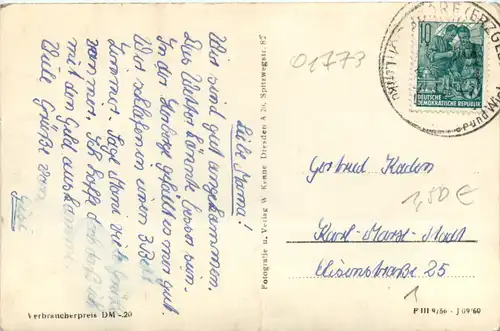 Liebe Mama!
Wir sind gut angekommen.
Das Wetter könnte besser sein.
In der Herberge gefällt es mir gut.
Wir schlafen in einem 3 Bett
Zimmer. Sage Mandi viele Grüße
von mir. Ich hoffe
mit dem Geld auskomme.
Viele Grüße von
Fotografie u. Verlag W. Kenne Dresden A 20, Spitzwegstr. 82
01773
10
DEUTSCHE
DEMOKRATISCHE REPUBLIK
Gertrud Kaden
1,50 €
Karl-Marx-Stadt
Elisenstraße 25
1
Verbraucherpreis DM -.20
P III 9/56 - J 09/60